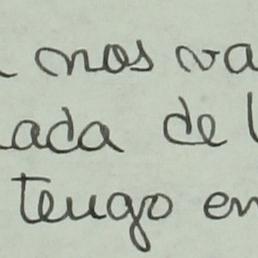 nos va
ada de
tengo en